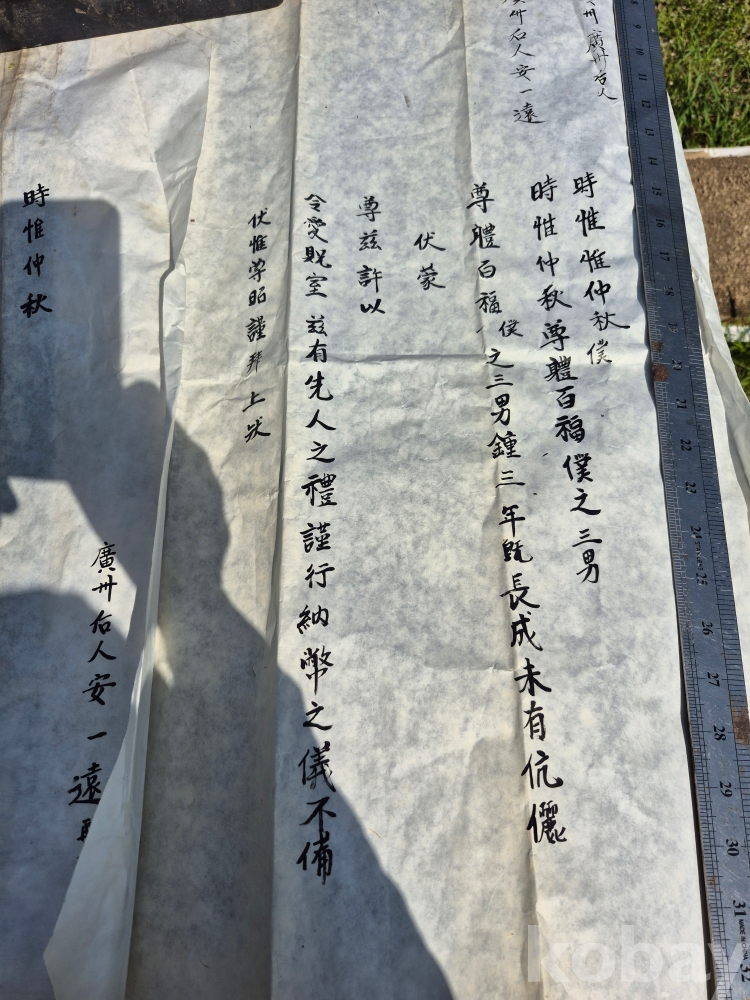 廣州后人
時惟惟仲秋僕
時惟仲秋尊軆百福僕之三男
州后人安一遠
尊軆百福僕之三男鍾三年旣長成未有伉儷
伏蒙
尊玆許以
令愛貺室玆有先人之禮謹行納幣之儀不備
伏惟尊昭謹拜上狀
廣州后人安一遠
時惟仲秋
8
9
10
11
12
13
14
15
16
17
18
19
20
21
22
23
24
25
26
27
28
29
30
31
32
kobay